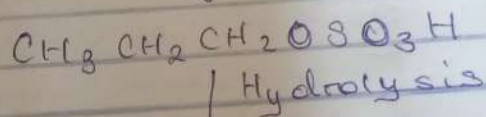 CH3 CH2 CH2 O S O3 H
| Hydrolysis